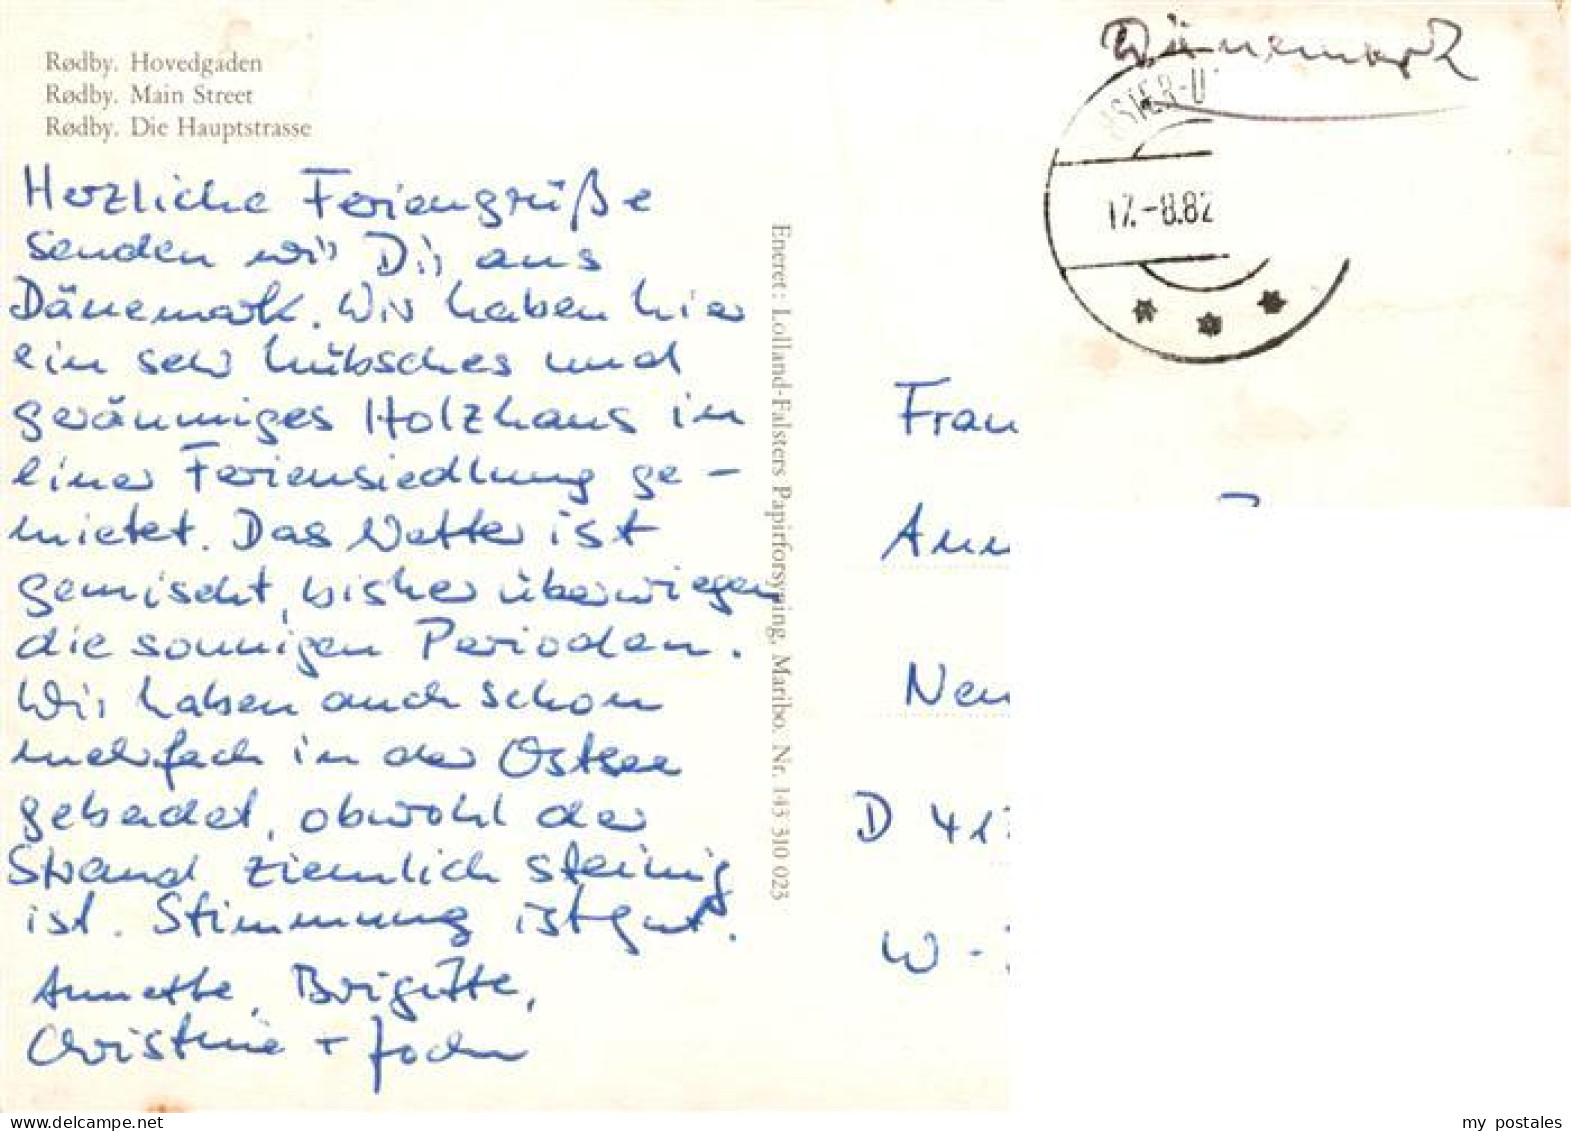 Rødby. Hovedgaden
Rødby. Main Street
Rødby. Die Hauptstrasse
Herzliche Feriengrüße
senden wir Dir aus
Dänemark. Wir haben hier
ein sehr hübsches und
geräumiges Holzhaus in
einer Feriensiedlung ge-
mietet. Das Wetter ist
gemischt, bisher überwiegen
die sonnigen Perioden.
Wir haben auch schon
mehrfach in der Ostsee
gebadet, obwohl der
Strand ziemlich steinig
ist. Stimmung ist gut.
Annette, Brigitte,
Christine + Jochen
Eneret: Lolland-Falsters Papirforsyning, Maribo. Nr. 143 310 023
Dänemark
17.-8.82
Frau
Ann
Neu
D 41
W -
delcampe.net
my_postales